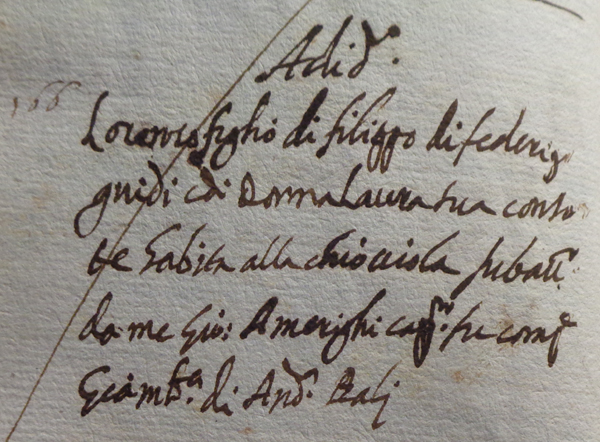 Adi d.º
166
Lorenzo figlio di filippo di federigo
guidi e di Donna Laura sua consor
te habita alla chiocciola fu batt.º
da me Gio: Amerighi capp.no fu comp.e
Giamb.a di And.a Balj